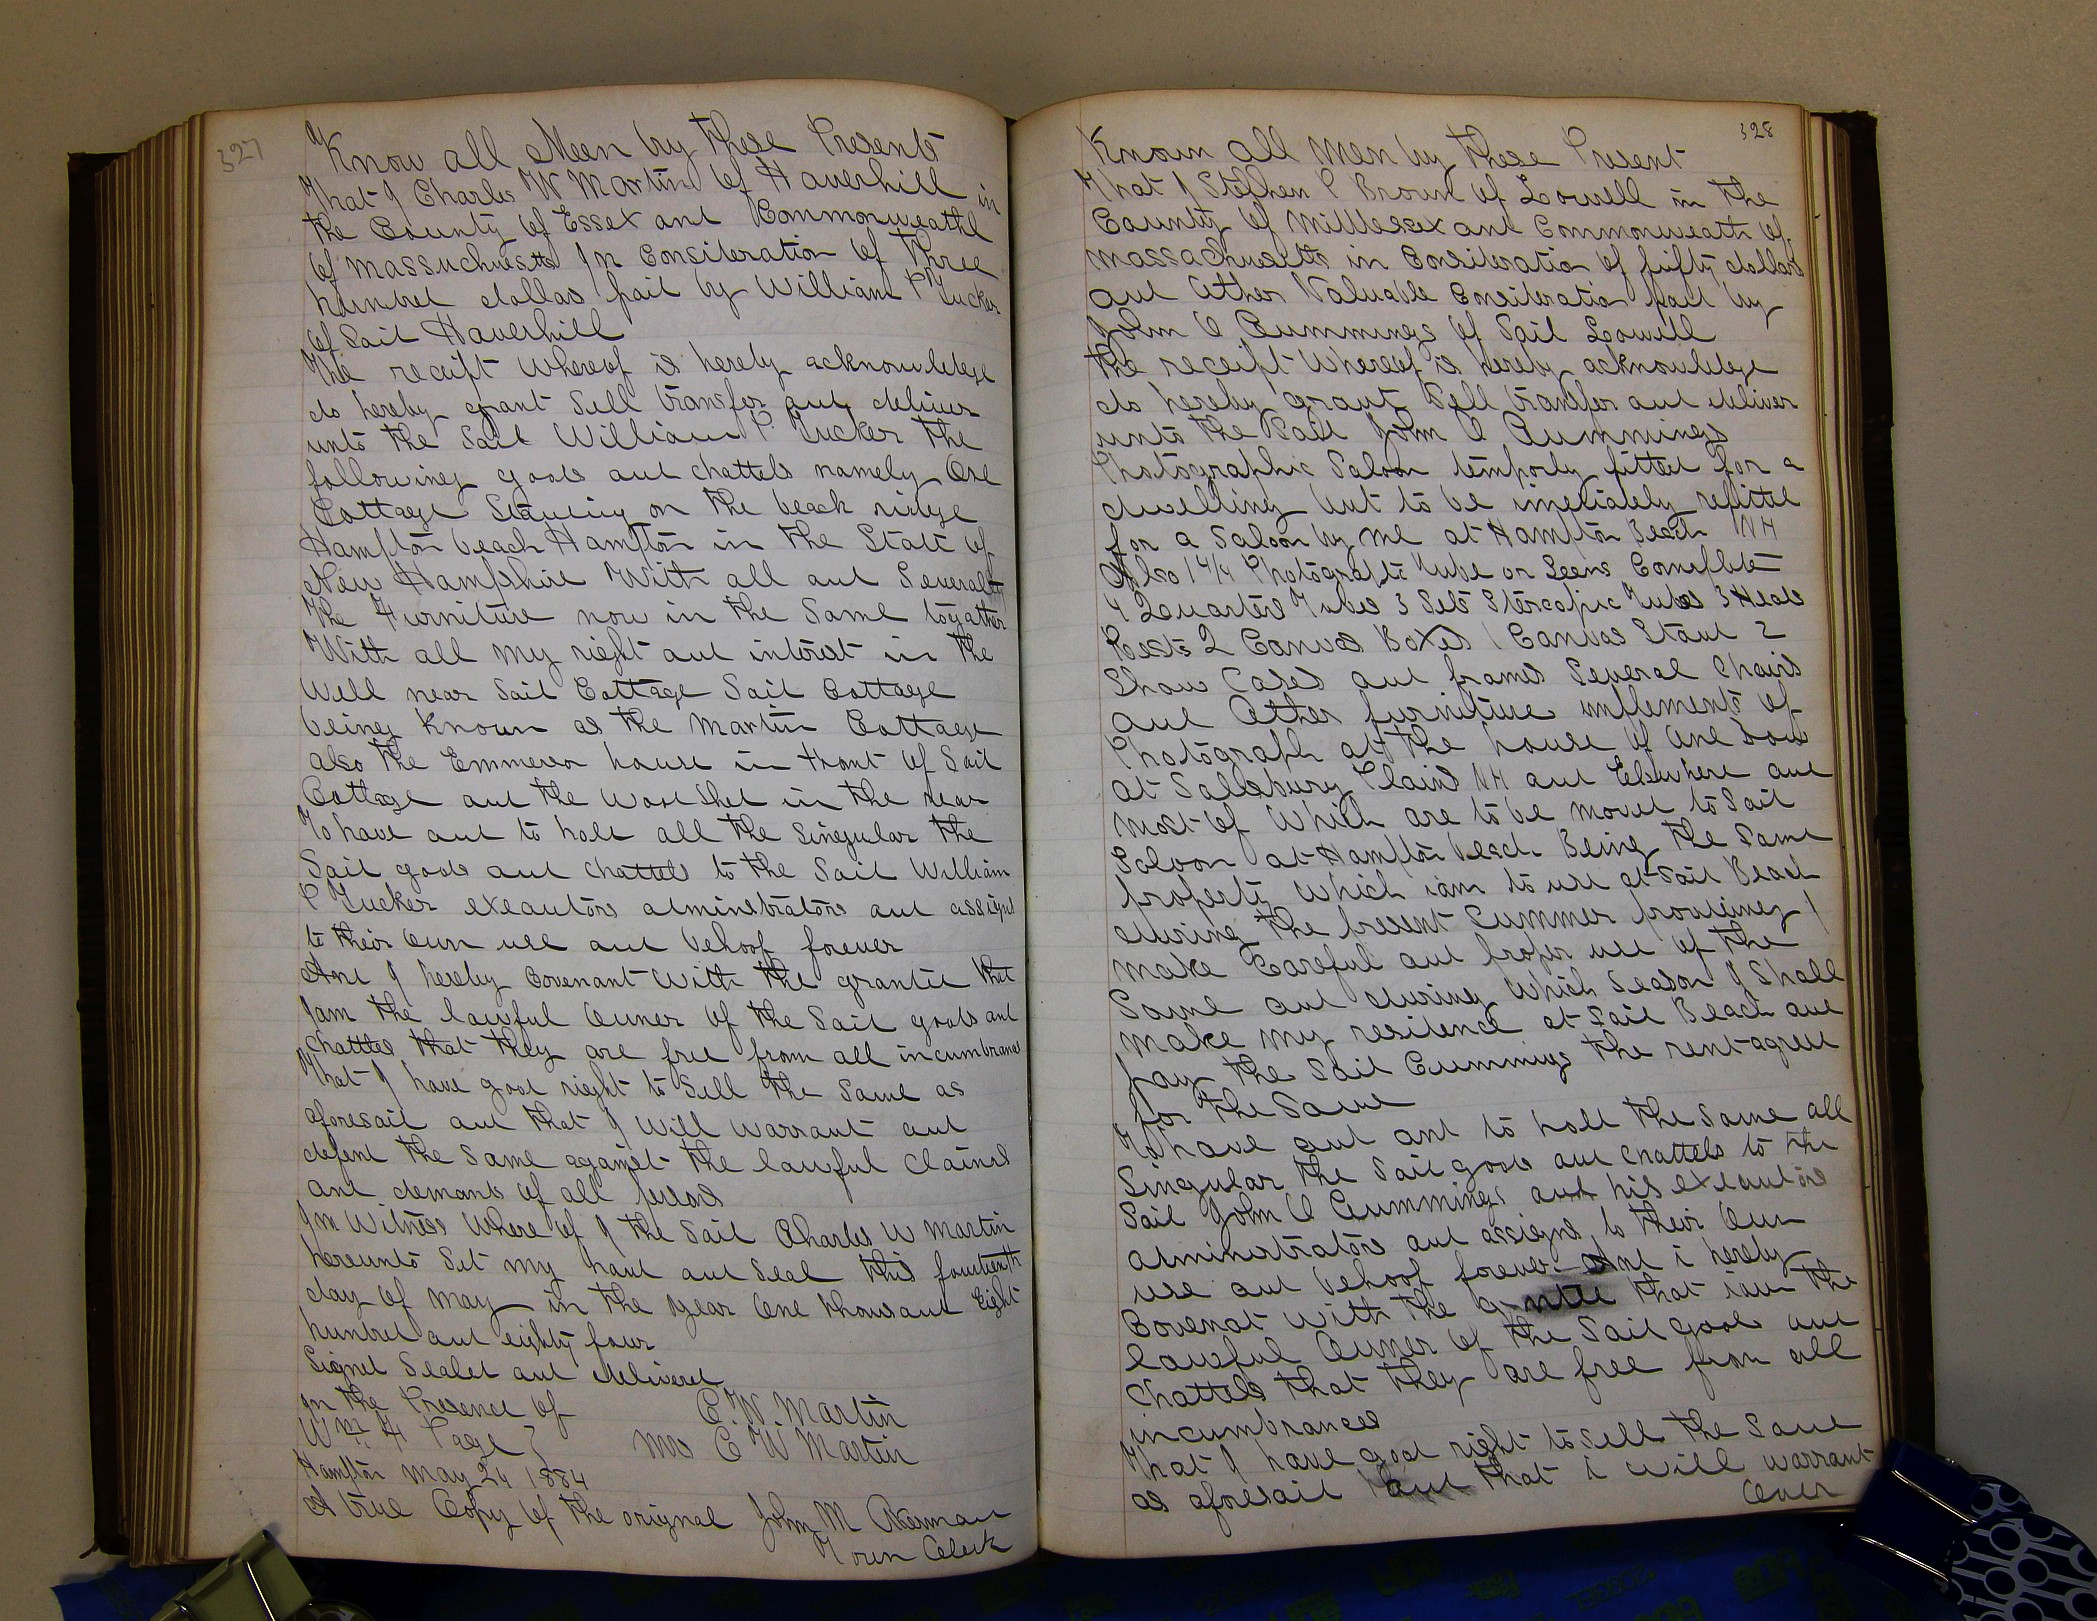 327
Know all Meen by these Presents
That I Charles W Martin of Haverhill in
the County of Essex and Commonweathl
of Massuchusetts In Consideration of Three
hundred dollas paid by William P Tucker
of Said Haverhill
The receift Whereof is hereby acknowledege
do hereby grant Sell transfer and deliver
unto the Said William P. Tucker the
following goods and chattels namely One
Cottage Standing on the beach ridge
Hampton beach Hampton in the State of
New Hampshire With all and Severalty
The Furniture now in the Same togather
With all my right and interest in the
Well near Said Cottage Said Cottage
being Known as the Martin Cottage
also the Emmerson house in front of Said
Cottage and the Wood Shed in the rear
To have and to hold all the singular the
Said goods and chattels to the Said William
P Tucker exeautors adminstrators and assigns
to their Own use and behoof forever
And I hereby Covenant With the grantee that
I am the lawful Owner of the Said goods and
Chattles that they are free from all incumbrances
That I have good right to Sell the Same as
aforesaid and that I Will Warrant and
defend the Same against the lawful Claimes
and demands of all persons
In Witness Where of I the Said Charles W Martin
hereunto Set my hand and Seal this fourteenth
day of May in the year One thousand Eight
hundred and eighty four
Signed Sealed and delivered
in the Presence of C. W. Martin
Wm. H Page } Mrs C W Martin
Hampton May 24 1884
A true Copy of the orignal John M Akerman
Town Clerk
328
Known all Men by these Present
That I Stephen P Brown of Lowell in the
County of Middlesex and Commonweath of
Massachusetts in Consideration of fiifty dollars
and Other Valuable Consideration paid by
John O Cummings of Said Lowell
the receipt Whereof is hereby acknowledege
do hereby grant Sell transfer and deliver
unto the Said John O Cummings
Photographic Saloon temporly fitted for a
dwelling but to be imediately refitted
for a Saloon by me at Hampton Beach NH
Also 1 4/4 Photografh Tube or Leens Complete
4 Quarters Tubes 3 Sets Sterscopic Tubes 3 Head
Rests 2 Canvas Boxes 1 Canvas Stand 2
Show Cases and frames Several Chairs
and Other furniture implements of
Photograph at the house of One Dow
at Salsbury Plains NH and Elsewhere and
most of Which are to be moved to Said
Saloon at Hampton beach Being the Same
property which iam to use at Said Beach
during the present Summer providing I
make Careful and proper use of the
Same and during Which Season I Shall
make my residence at Said Beach and
pay the Said Cummings the rent agreed
for the Same
To have and and to hold the Same all
Singular the Said goods and chattels to the
Said John O Cummings and his exeautors
adminstrators and assigns to their Own
use and behoof forever And i hereby
Covenat With the grantee that iam the
lawful Owner of the Said goods and
Chattels that they are free from all
incumbrances
That I have good right to Sell the Same
as aforesaid and that i will warrant
Over